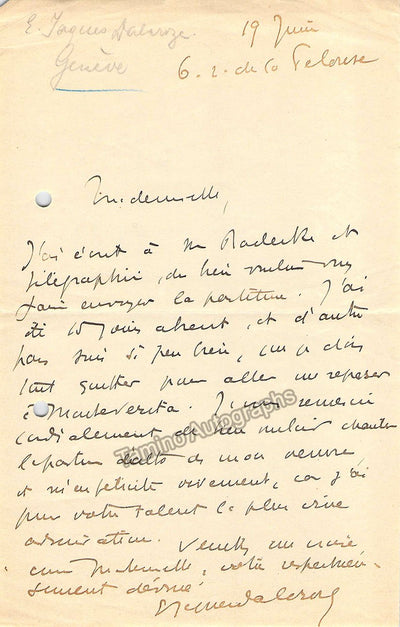 E. Jaques Dalcroze.
Genève
19 Juin
6. r. de la Pelouse
Mademoiselle,
J'ai écrit à Mr Radecke et
télégraphié, de bien vouloir vous
faire envoyer la partition. J'ai
été 15 jours absent, et d'autre
part suis si peu bien, que je dois
tout quitter pour aller me reposer
à Monteverita. Je vous remercie
cordialement de bien vouloir chanter
la partie d'alto de mon oeuvre
et m'en félicite vivement, car j'ai
pour votre talent la plus vive
admiration. Veuillez me croire
Mademoiselle, votre respectueu-
sement dévoué
E Jaques Dalcroze
Tamino Autographs